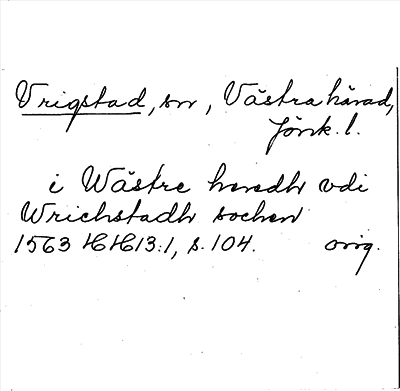 Vrigstad, sn, Västra härad,
Jönk. l.
i Wästre heredh vdi
Wrichstadh sochen
1563 HH13:1, s. 104. orig.